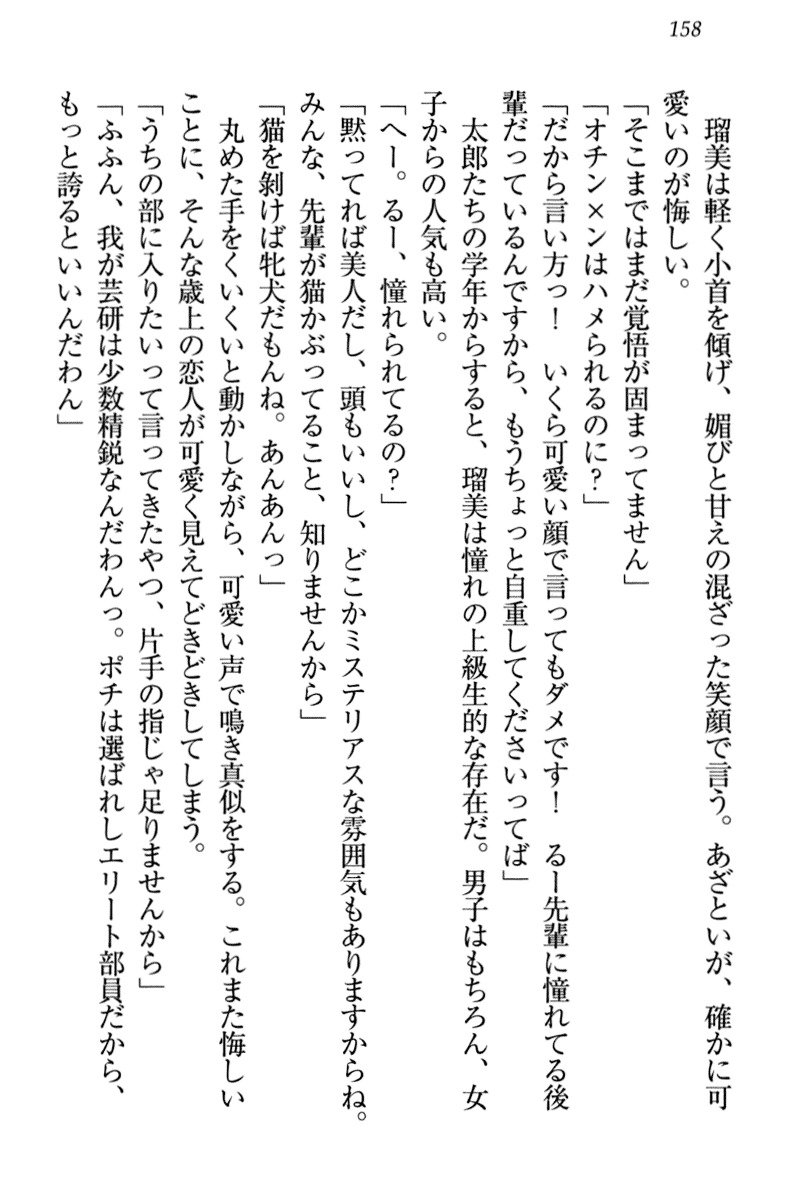 158
瑠美は軽く小首を傾げ、媚びと甘えの混ざった笑顔で言う。あざといが、確かに可
愛いのが悔しい。
「そこまではまだ覚悟が固まってません」
「オチン×ンはハメられるのに？」
「だから言い方っ！　いくら可愛い顔で言ってもダメです！　るー先輩に憧れてる後
輩だっているんですから、もうちょっと自重してくださいってば」
太郎たちの学年からすると、瑠美は憧れの上級生的な存在だ。男子はもちろん、女
子からの人気も高い。
「へー。るー、憧れられてるの？」
「黙ってれば美人だし、頭もいいし、どこかミステリアスな雰囲気もありますからね。
みんな、先輩が猫かぶってること、知りませんから」
「猫を剝げば牝犬だもんね。あんあんっ」
丸めた手をくいくいと動かしながら、可愛い声で鳴き真似をする。これまた悔しい
ことに、そんな歳上の恋人が可愛く見えてどきどきしてしまう。
「うちの部に入りたいって言ってきたやつ、片手の指じゃ足りませんから」
「ふふん、我が芸研は少数精鋭なんだわんっ。ポチは選ばれしエリート部員だから、
もっと誇るといいんだわん」